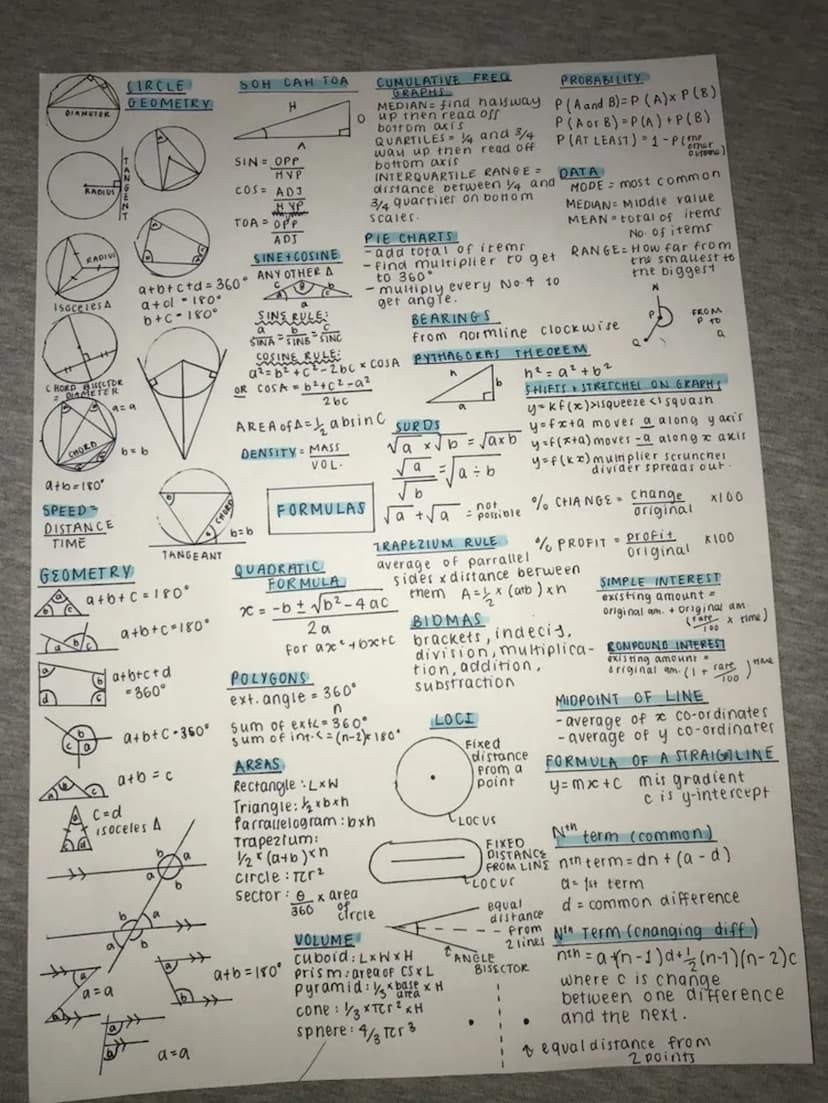 CIRCLE
GEOMETRY
DIAMETER
RADIUS
TANGENT
RADIUS
ISOCELES Δ
a+b+c+d = 360°
a+d = 180°
b+c = 180°
CHORD BISECTOR
= DIAMETER
a = a
b = b
CHORD
a+b = 180°
CHORD
b = b
TANGEANT
SPEED =
DISTANCE
TIME
GEOMETRY
a+b+c = 180°
a+b+c = 180°
a+b+c+d
= 360°
a+b+c = 360°
a+b = c
c = d
isoceles Δ
a b
a b
b a
a b
a = a
a+b = 180°
a = a
SOH CAH TOA
H
O
A
SIN = OPP
HYP
COS = ADJ
HYP
TOA = OPP
ADJ
SINE + COSINE
ANY OTHER Δ
SINE RULE:
a = b = c
SINA SINB SINC
COSINE RULE:
a² = b² + c² - 2bc × COSA
OR COSA = b² + c² - a²
2bc
AREA of Δ = ½ absinC
DENSITY = MASS
VOL.
FORMULAS
QUADRATIC
FORMULA
x = -b ± √b² - 4ac
2a
for ax² + bx + c
POLYGONS
ext. angle = 360°
n
sum of ext∠ = 360°
sum of int.∠ = (n-2) × 180°
AREAS
Rectangle: L×W
Triangle: ½ × b × h
Parrallelogram: b×h
Trapezium:
½ × (a+b) × h
circle: πr²
sector: θ × area
360 of
circle
VOLUME
cuboid: L×W×H
prism: area of CS × L
pyramid: ⅓ × base area × H
cone: ⅓ × πr² × H
sphere: 4/3 πr³
CUMULATIVE FREQ
GRAPHS
MEDIAN = find halfway
up then read off
bottom axis
QUARTILES = ¼ and ¾
way up then read off
bottom axis
INTERQUARTILE RANGE =
distance between ¼ and
¾ quartiles on bottom
scales.
PIE CHARTS
- add total of items
- find multiplier to get
to 360°
- multiply every No. 4 to
get angle.
BEARINGS
from normline clockwise
N
P
Q
FROM
P TO
Q
PYTHAGORAS THEOREM
h
b
a
h² = a² + b²
SURDS
√a × √b = √a×b
√a = √a÷b
√b
√a + √a = not
possible
TRAPEZIUM RULE
average of parrallel
sides × distance between
them A = ½ × (a+b) × h
BIDMAS
brackets, indecis,
division, multiplica-
tion, addition,
substraction
LOCI
Fixed
distance
from a
point
LOCUS
FIXED
DISTANCE
FROM LINE
LOCUS
equal
distance
from
2 lines
ANGLE
BISSECTOR
PROBABILITY
P(A and B) = P(A) × P(B)
P(A or B) = P(A) + P(B)
P(AT LEAST) = 1 - P(the
other
outcome)
DATA
MODE = most common
MEDIAN = Middle value
MEAN = total of items
No. of items
RANGE = How far from
the smallest to
the biggest
SHIFTS + STRETCHES ON GRAPHS
y = kf(x) >1 squeeze <1 squash
y = fx + a moves a along y axis
y = f(x+a) moves -a along x axis
y = f(kx) multiplier scrunches
divider spreads out.
% CHANGE = change ×100
original
% PROFIT = profit ×100
original
SIMPLE INTEREST
existing amount =
original am. + original am
(rate/100 × time)
COMPOUND INTEREST
existing amount =
original am. (1 + rate/100) time
MIDPOINT OF LINE
- average of x co-ordinates
- average of y co-ordinates
FORMULA OF A STRAIGHT LINE
y = mx + c m is gradient
c is y-intercept
Nth term (common)
nth term = dn + (a - d)
a = 1st term
d = common difference
Nth Term (changing diff)
nth = a + (n-1)d + ½(n-1)(n-2)c
where c is change
between one difference
and the next.
equal distance from
2 points